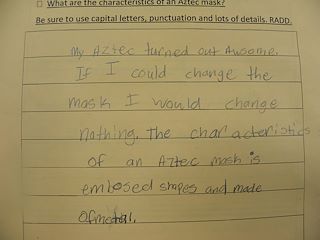 □ What are the characteristics of an Aztec mask?
Be sure to use capital letters, punctuation and lots of details. RADD.
My Aztec turned out Awsome.
If I could change the
mask I would change
nothing. The characteristics
of an Aztec mask is
embosed shapes and made
of metal.